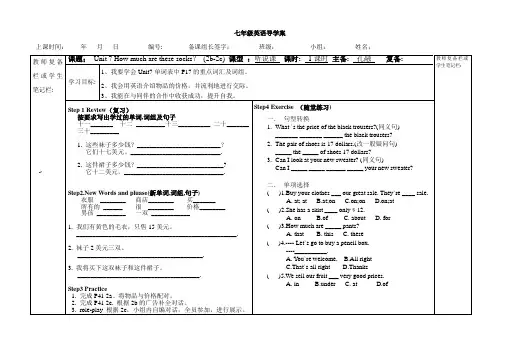 七年级英语导学案
上课时间: 年 月 日 编号: 备课组长签字: 班级: 小组: 姓名:
教师复备栏或学生笔记栏:
课题: Unit 7 How much are these socks? (2b-2e) 课型: 听说课 课时: 1课时 主备: 孔融 复备:
教师复备栏或学生笔记栏:
学习目标:
1、我要学会Unit7单词表中P17的重点词汇及词组。
2、我会用英语介绍物品的价格,并流利地进行交际。
3、我能在与同伴的合作中收获成功,提升自我。
Step 1 Review(复习)
按要求写出学过的单词,词组及句子
十一______ 十二 ________十三________ 二十______
三十________
1. 这些袜子多少钱?____________________?
它们十七美元。____________________.
2. 这件裙子多少钱?____________________?
它十二美元。____________________.
Step2.New Words and phrase(新单词,词组,句子)
衣服________ 商店______ 买______
所有的 ______ 很 ______ 价格______
男孩 ________ 一双 __________
1. 我们有黄色的毛衣,只售15美元。
____________________.
2. 袜子2美元三双。
____________________.
3. 我将买下这双袜子和这件裙子。
____________________.
Step3 Practice
1. 完成P41 2a。将物品与价格配对。
2. 完成P41 2c. 根据2b的广告补全对话。
3. role-play 根据2c,小组内自编对话。全员参加,进行展示。
Step4 Exercise (随堂练习)
一. 句型转换
1. What 's the price of the black trousers?(同义句)
______ ______ ______ the black trousers?
2. The pair of shoes is 17 dollars.(改一般疑问句)
______ the ______ of shoes 17 dollars?
3. Can I look at your new sweater? (同义句)
Can I ______ ______ ______ ______ your new sweater?
二. 单项选择
( )1.Buy your clothes ___ our great sale. They're ____ sale.
A. at; at B.at;on C.on;on D.on;at
( )2.She has a skirt ____ only ¥ 12.
A. on B.of C. about D. for
( )3.How much are _____ pants?
A. that B. this C. there
( )4.---- Let's go to buy a pencil box.
----__________.
A. You're welcome. B.All right
C.That's all right D.Thanks
( )5.We sell our fruit ___ very good prices.
A. in B.under C. at D.of